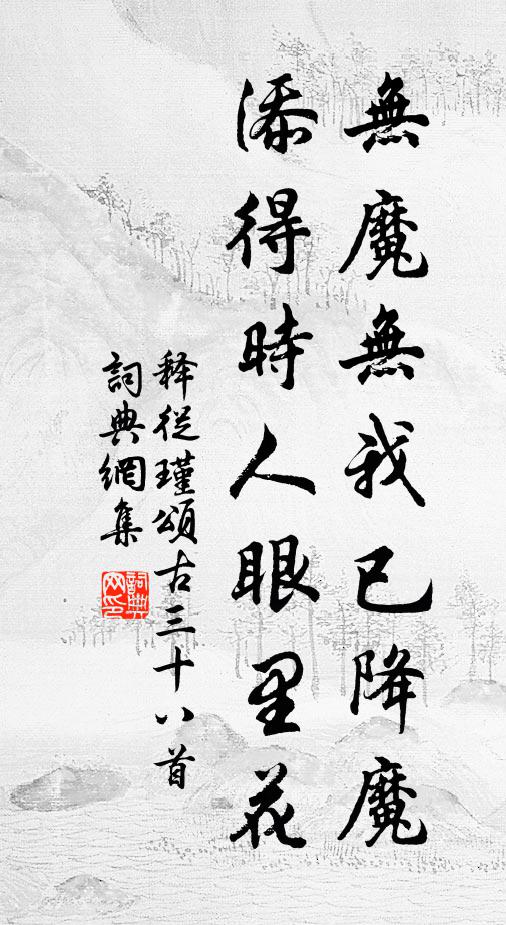 無魔無我已降魔
添得時人眼里花
释從瑾頌古三十八首
詞典網集
詞典网印